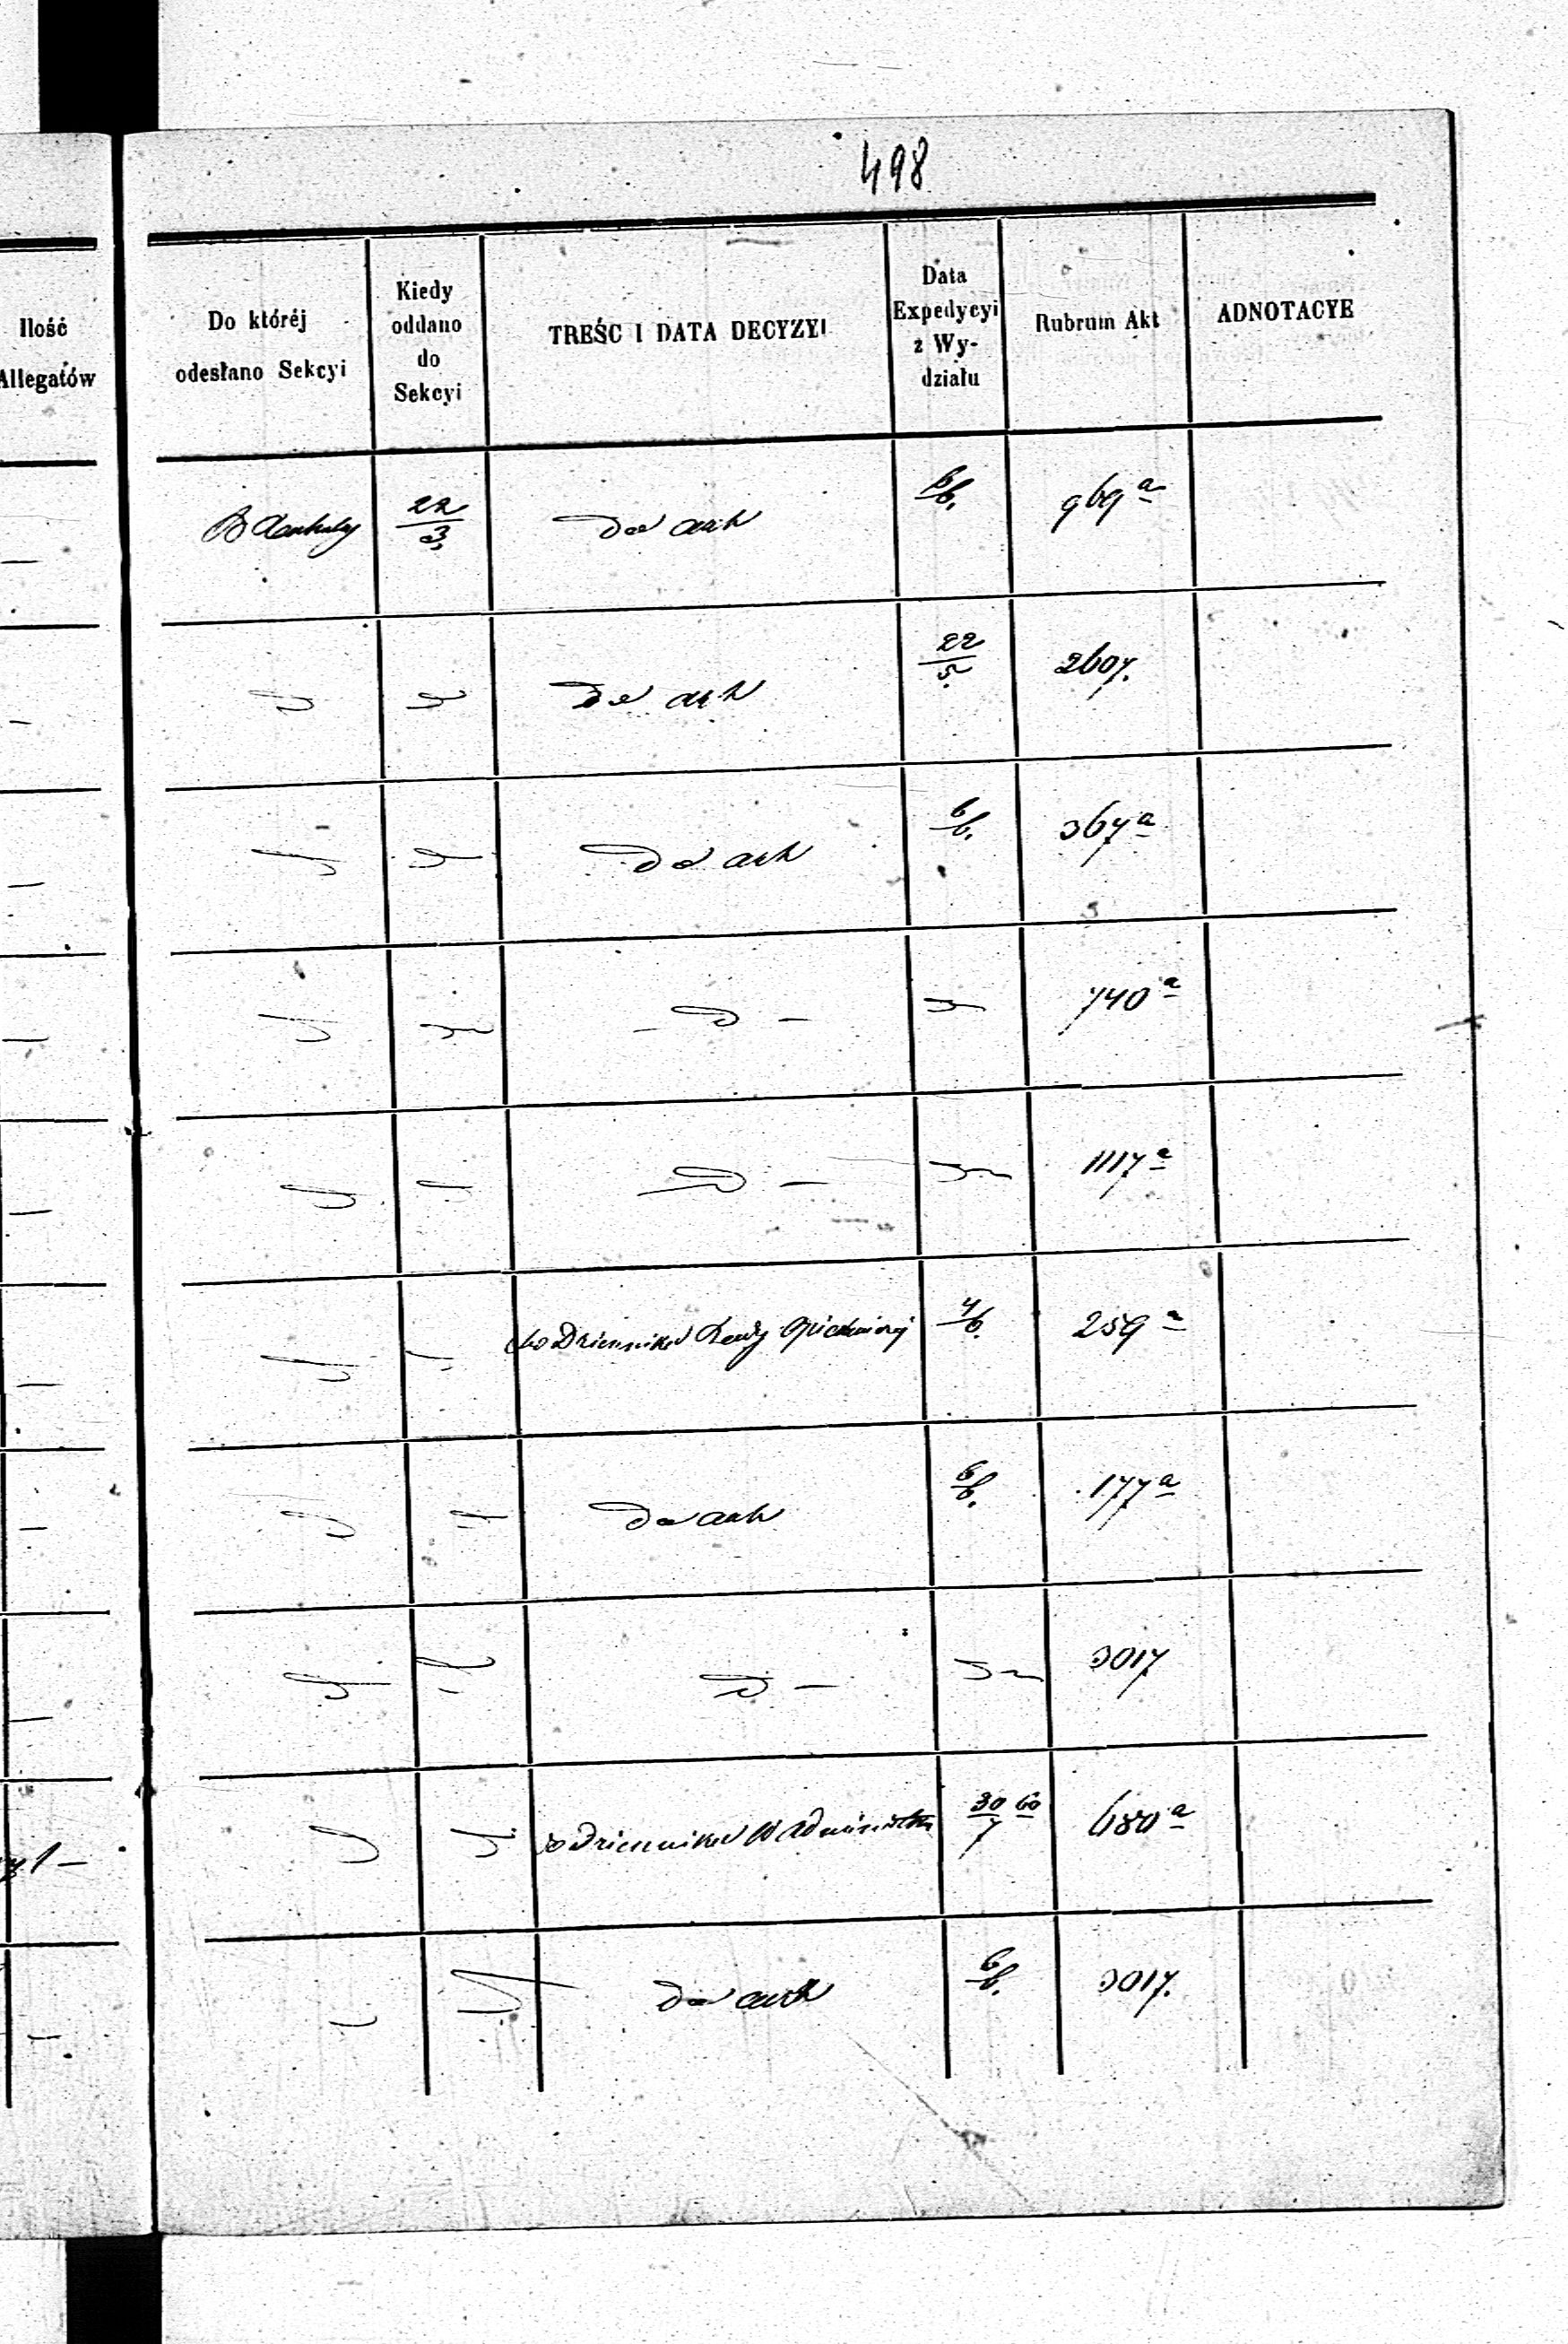 498
Ilość
Allegatów
Do któréj
odesłano Sekcyi
Kiedy
oddano
do
Sekcyi
TREŚC I DATA DECYZYI
Data
Expedycyi
z Wy-
działu
Rubrum Akt
ADNOTACYE
22/3 do akt 6/6. 969 a
do akt 22/5. 2607.
do akt 6/6. 367 a
740 a
1117 a
do Dziennika Rady Opiekuńczej 4/6. 259 a
do akt 6/6. 177 a
3017
do Dziennika W 30/7 60 680 a
do akt 6/6. 3017.